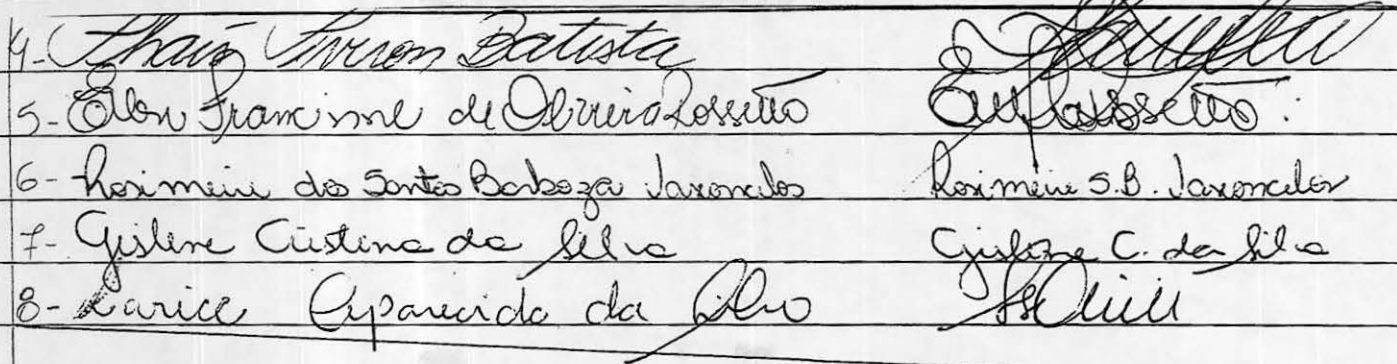 4- Thais Batista
5- Elen Francine de Oliveira Rossetto Rossetto
6- Rosimeire dos Santos Barboza Vasconcelos Rosimeire S.B. Vasconcelos
7- Gislene Cristina da Silva Gislene C. da Silva
8- Larice Aparecida da Silva